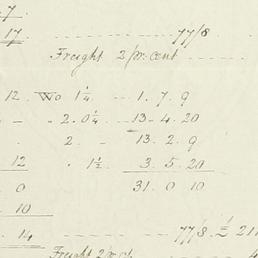 7
17 77/8
Freight 2 pr. cent
12. Wo 1¼ 1. 7. 9
2. 0¼ 13. 4. 20
2. 13. 2. 9
12 1½ 3. 5. 20
0 31. 0 10
10
14 77/8 £ 21
Freight 2 pr ct